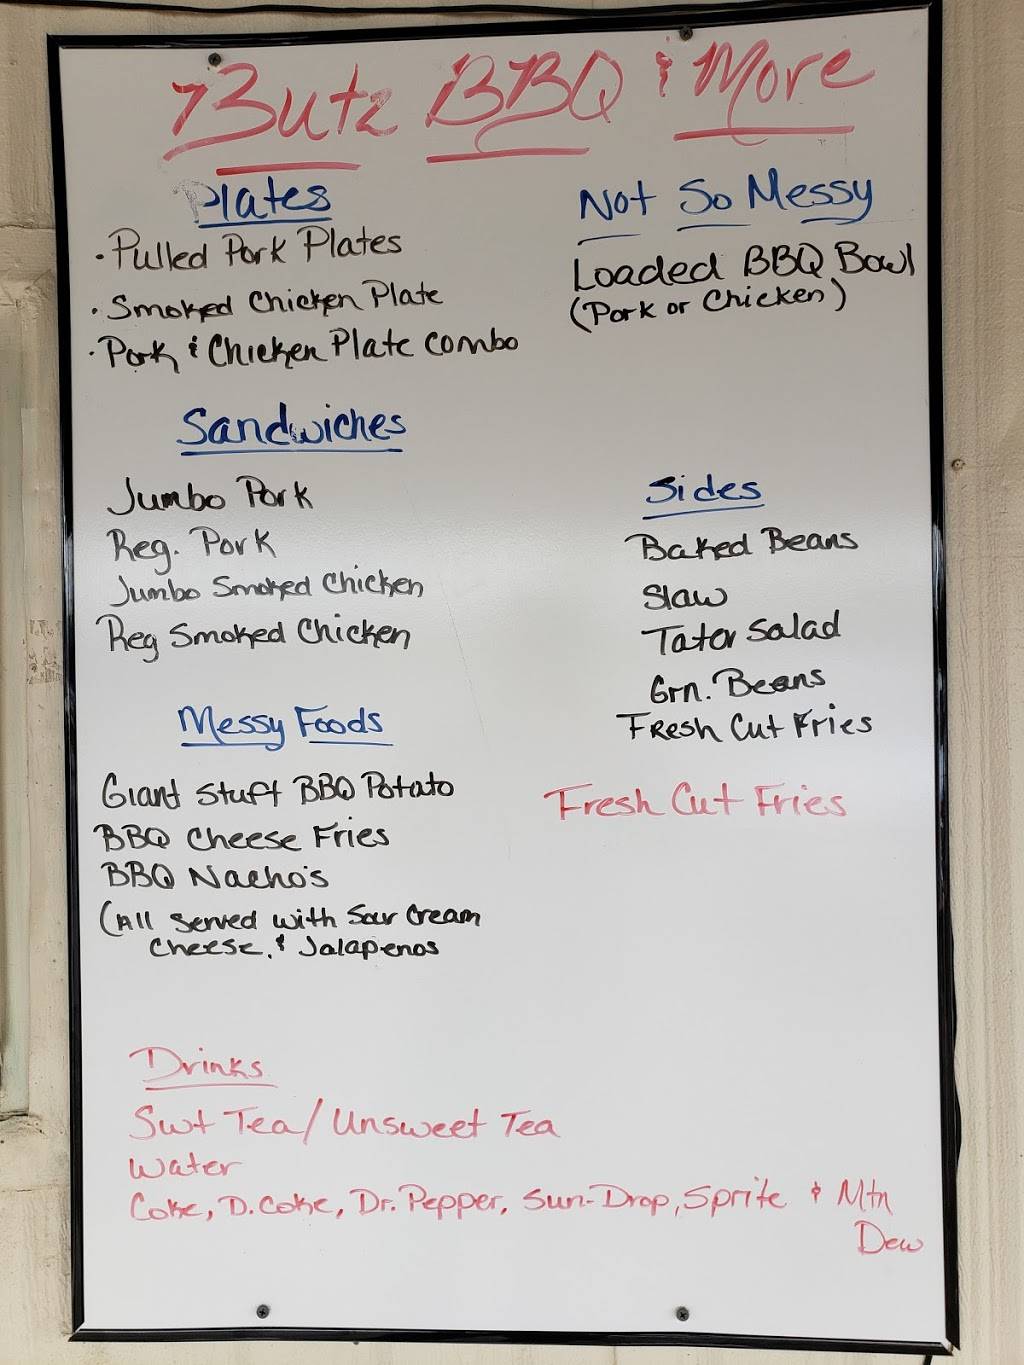 Butz BBQ & More
Plates
· Pulled Pork Plates
· Smoked Chicken Plate
· Pork & Chicken Plate combo
Sandwiches
Jumbo Pork
Reg. Pork
Jumbo Smoked Chicken
Reg Smoked Chicken
Messy Foods
Giant Stuft BBQ Potato
BBQ Cheese Fries
BBQ Nacho's
(All Served with Sour Cream
Cheese, & Jalapenos
Not So Messy
Loaded BBQ Bowl
(Pork or Chicken)
Sides
Baked Beans
Slaw
Tator Salad
Grn. Beans
Fresh Cut Fries
Fresh Cut Fries
Drinks
Swt Tea/Unsweet Tea
Water
Coke, D. Coke, Dr. Pepper, Sun-Drop, Sprite & Mtn
Dew